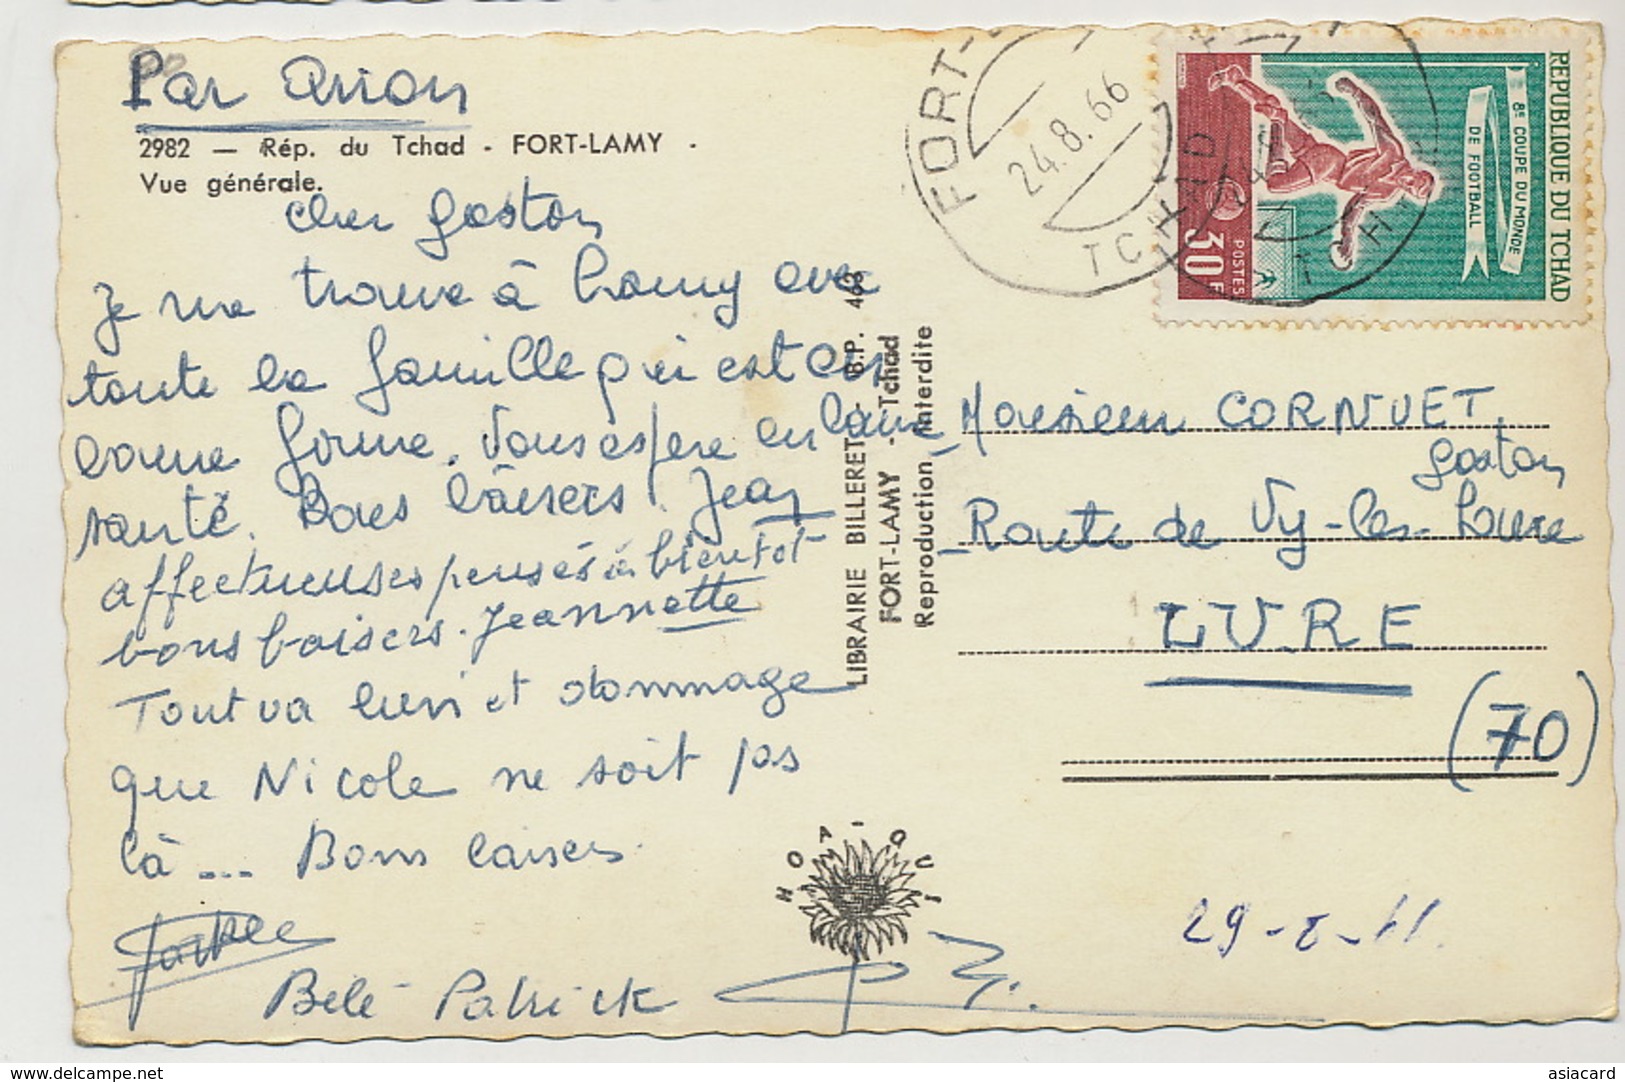 Par Avion
2982 — Rép. du Tchad - FORT-LAMY -
Vue générale.
Cher Gaston
Je me trouve à Lamy avec
toute la famille qui est en
bonne forme. Vous espère en bonne
santé. Bons baisers. Jean
affectueuses pensés à bientot
bons baisers. Jeannette
Tout va bien et dommage
que Nicole ne soit pas
là ... Bons baisers
Bélé Patrick
LIBRAIRIE BILLERET - B.P. 463
FORT-LAMY - Tchad
Reproduction interdite
HOA-QUI
FORT-
24.8.66
TCHAD
REPUBLIQUE DU TCHAD
8e COUPE DU MONDE
DE FOOTBALL
POSTES
30F
Monsieur CORNUET
Gaston
Route de Vy-les-Lure
LURE
(70)
www.delcampe.net
asiacard